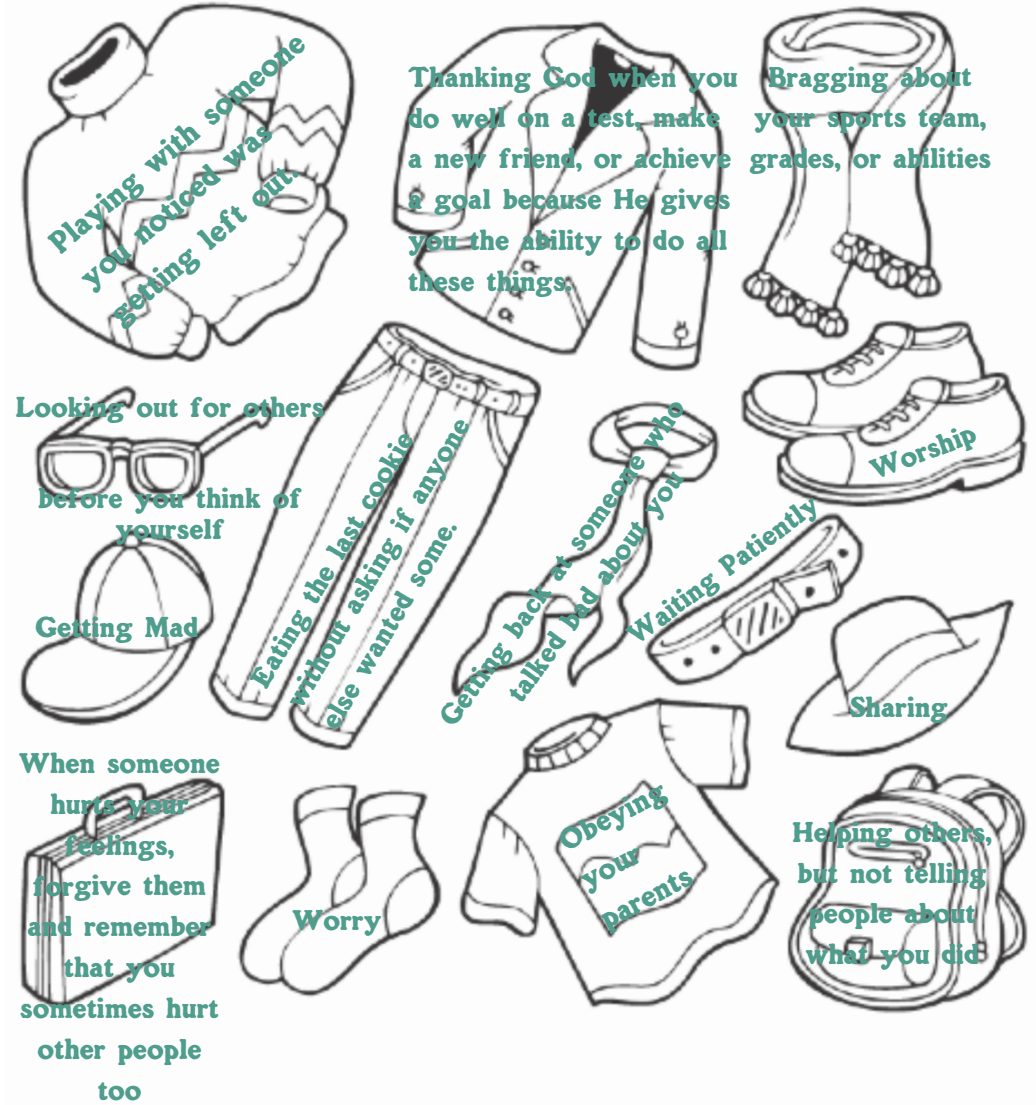 Playing with someone
you noticed was
getting left out.
Thanking God when you
do well on a test, make
a new friend, or achieve
a goal because He gives
you the ability to do all
these things.
Bragging about
your sports team,
grades, or abilities
Looking out for others
before you think of
yourself
Eating the last cookie
without asking if anyone
else wanted some.
Getting back at someone who
talked bad about you
Worship
Waiting Patiently
Getting Mad
Sharing
When someone
hurts your
feelings,
forgive them
and remember
that you
sometimes hurt
other people
too
Worry
Obeying
your
parents
Helping others,
but not telling
people about
what you did